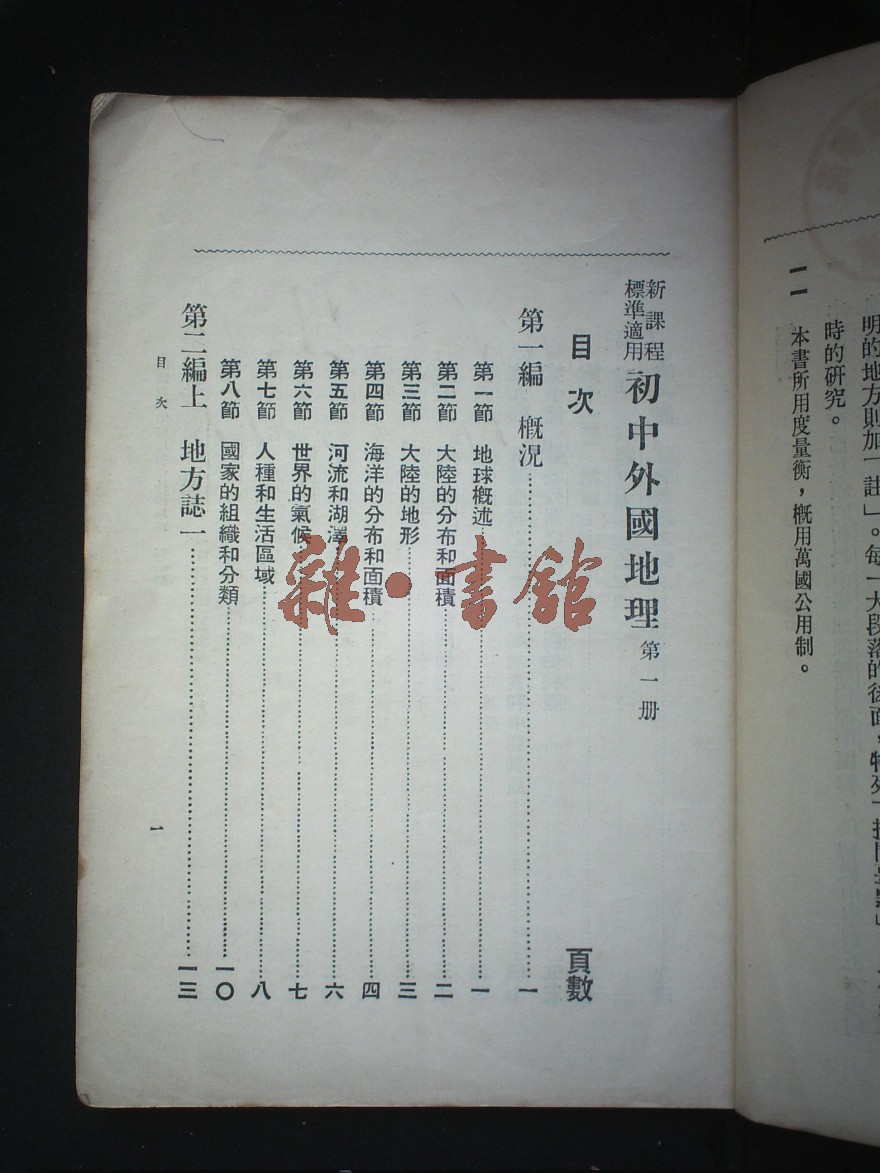 一一 本書所用度量衡，概用萬國公用制。
時的研究。
新課程
標準適用
初中外國地理 第一册
目次 頁數
第一編 概況 一
第一節 地球概述 一
第二節 大陸的分布和面積 二
第三節 大陸的地形 三
第四節 海洋的分布和面積 四
第五節 河流和湖澤 六
第六節 世界的氣候 七
第七節 人種和生活區域 八
第八節 國家的組織和分類 一〇
第二編上 地方誌一 一三
目次 一
雜·書館